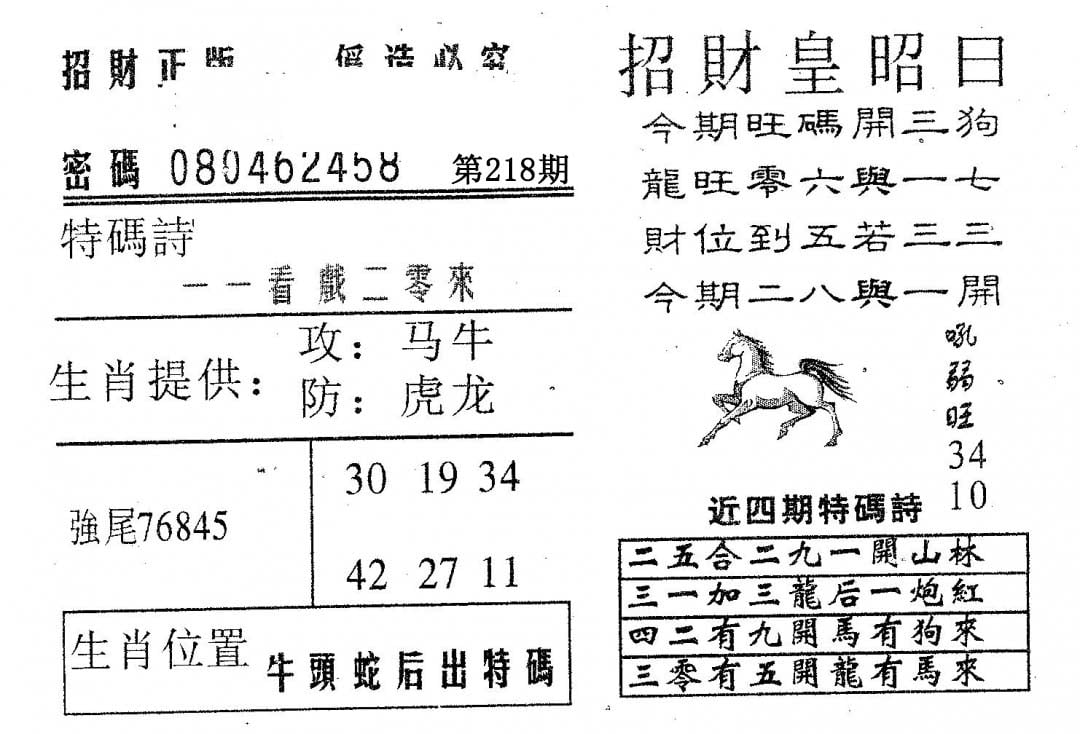 招財正版 僞造必究
密碼 080462458 第218期
特碼詩
一一看戲二零來
生肖提供：
攻：马牛
防：虎龙
強尾76845
30 19 34
42 27 11
生肖位置
牛頭蛇后出特碼
招財皇昭曰
今期旺碼開三狗
龍旺零六與一七
財位到五若三三
今期二八與一開
吼
弱
旺
34
10
近四期特碼詩
二五合二九一開山林
三一加三龍后一炮紅
四二有九開馬有狗來
三零有五開龍有馬來